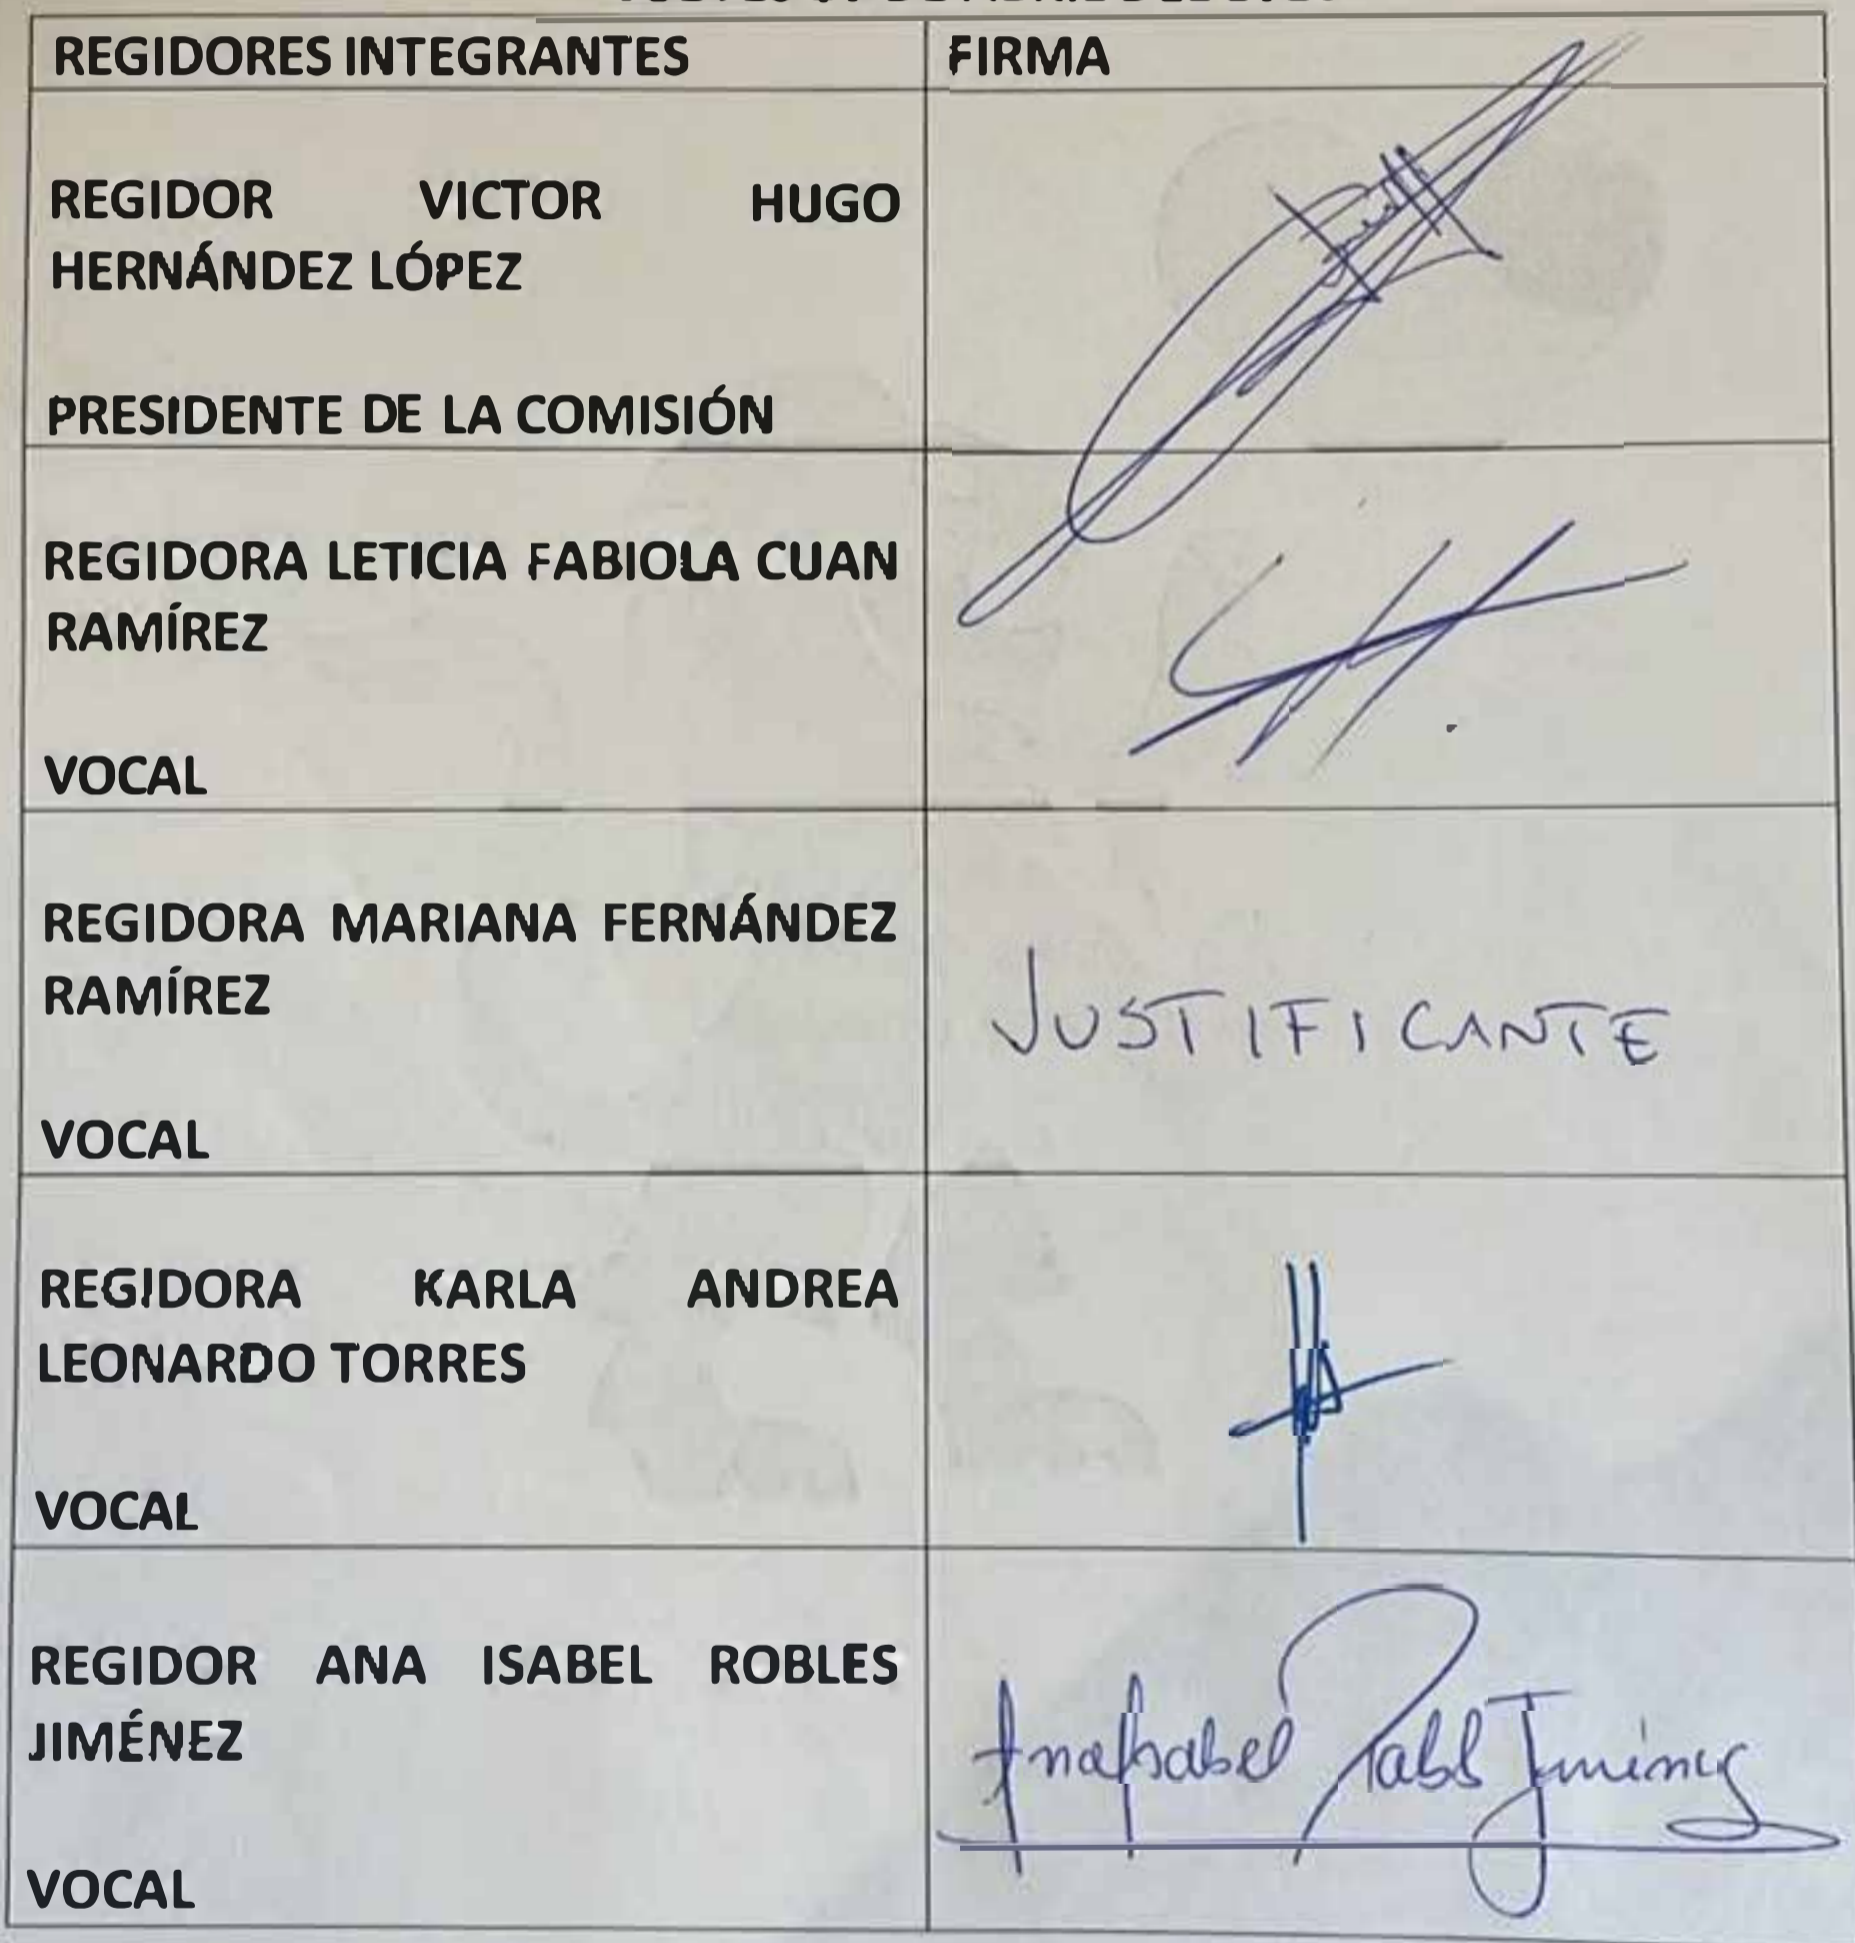 REGIDORES INTEGRANTES
FIRMA
REGIDOR VICTOR HUGO
HERNÁNDEZ LÓPEZ
PRESIDENTE DE LA COMISIÓN
REGIDORA LETICIA FABIOLA CUAN
RAMÍREZ
VOCAL
REGIDORA MARIANA FERNÁNDEZ
RAMÍREZ
VOCAL
JUSTIFICANTE
REGIDORA KARLA ANDREA
LEONARDO TORRES
VOCAL
REGIDOR ANA ISABEL ROBLES
JIMÉNEZ
VOCAL